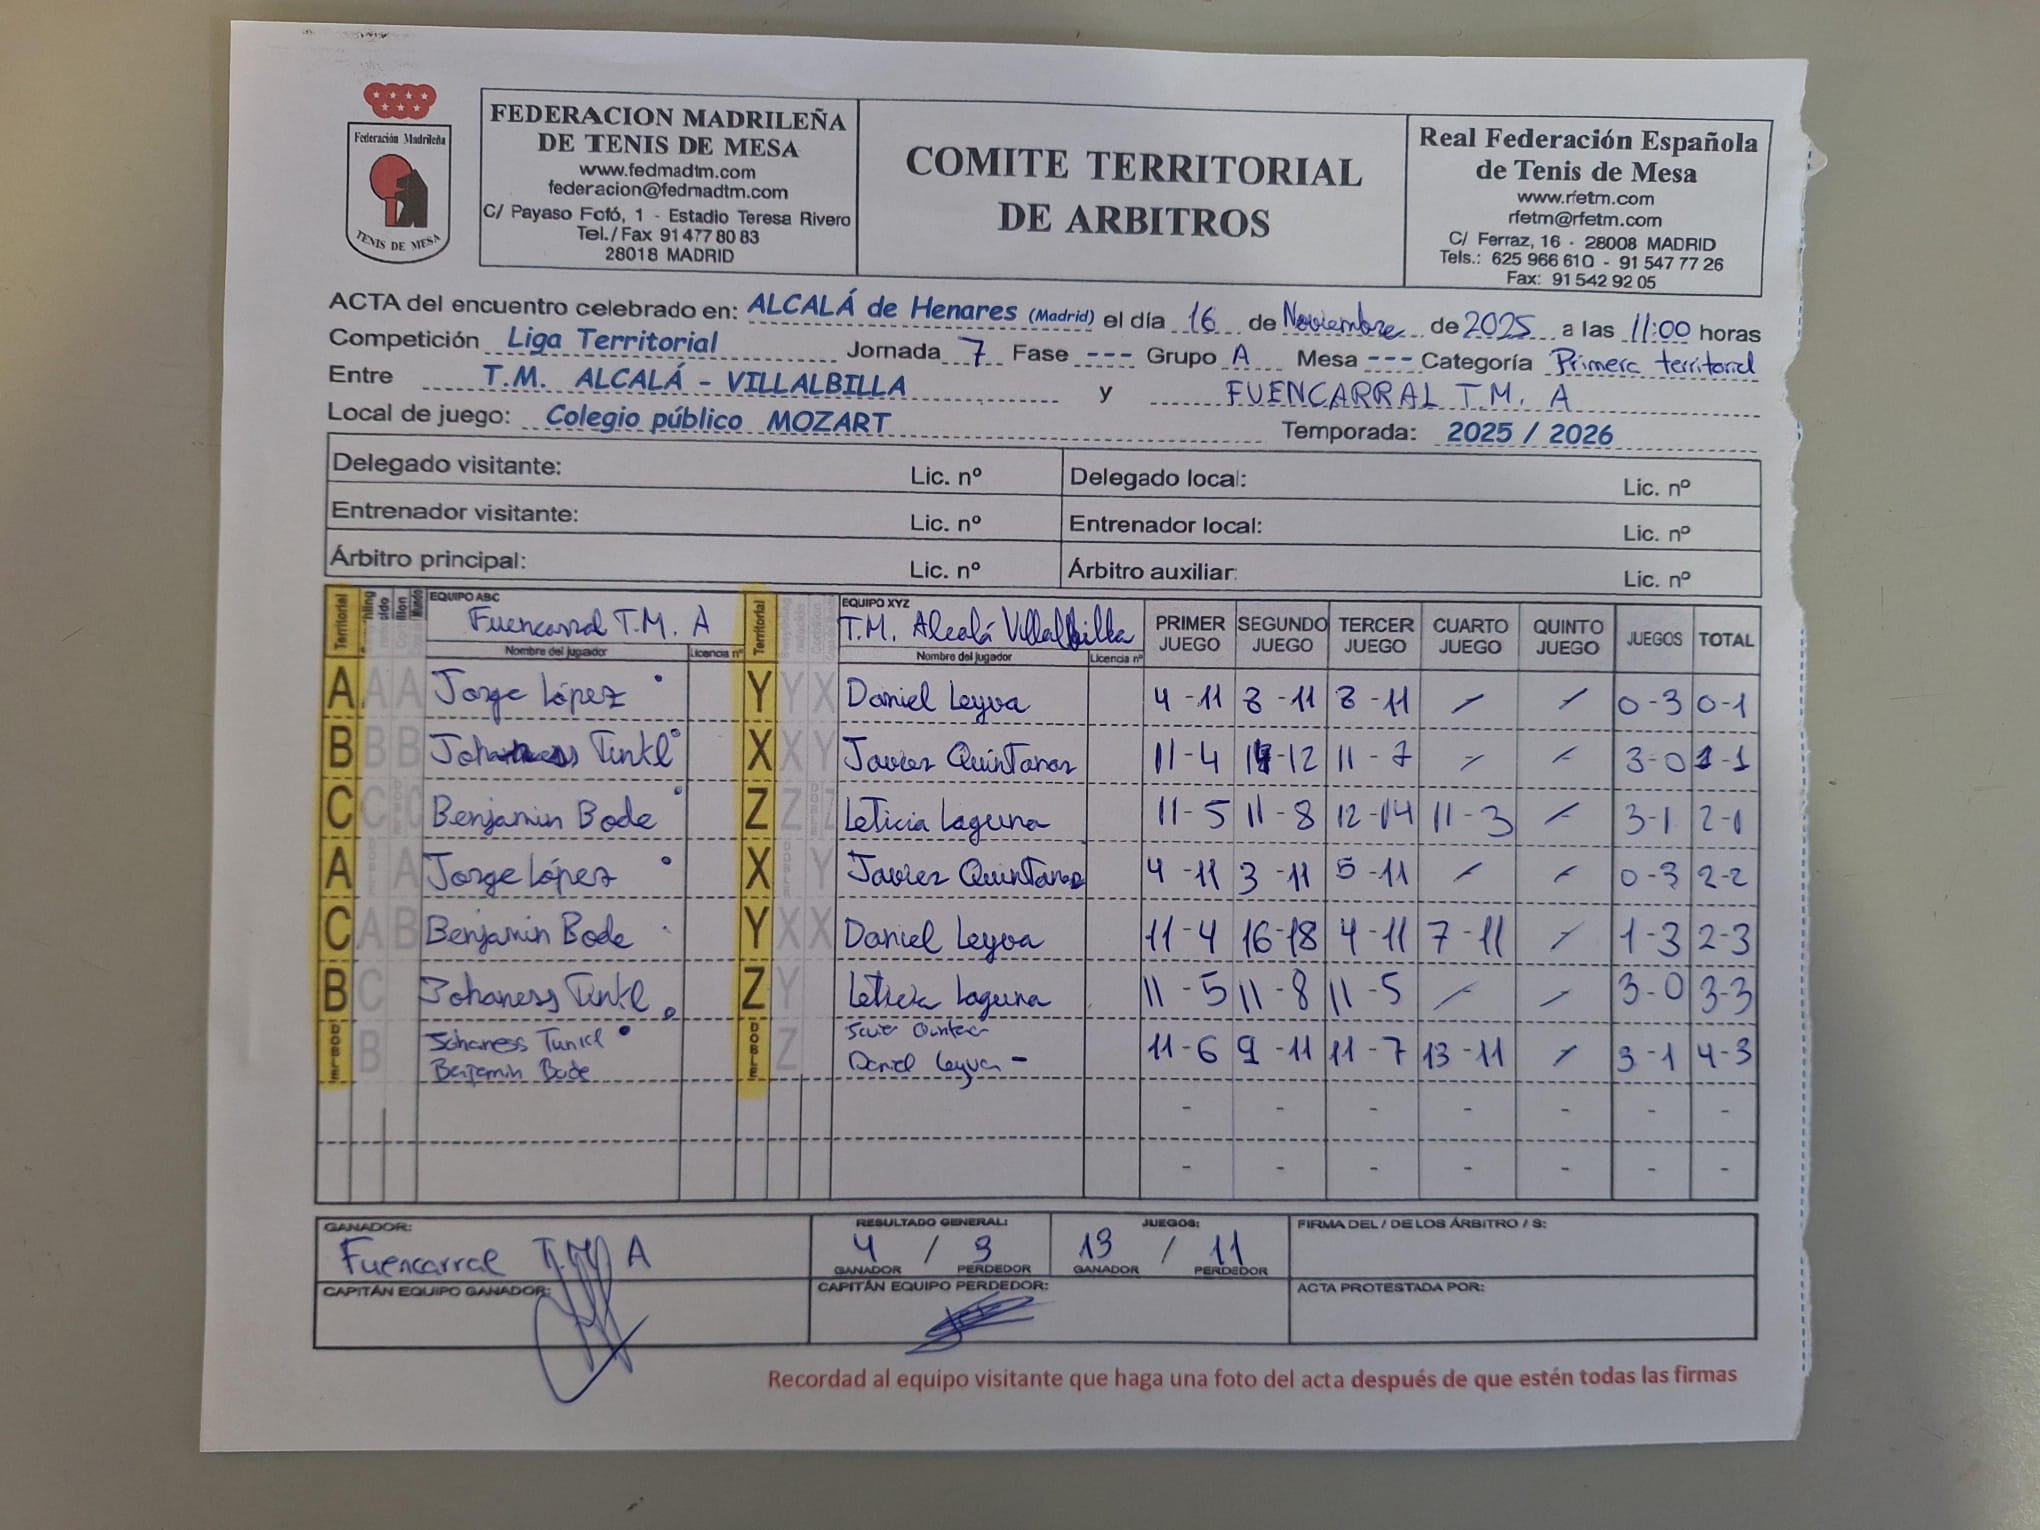 Federación Madrileña
TENIS DE MESA
FEDERACION MADRILEÑA
DE TENIS DE MESA
www.fedmadtm.com
federacion@fedmadtm.com
C/ Payaso Fofó, 1 - Estadio Teresa Rivero
Tel./Fax 91 477 80 83
28018 MADRID
COMITE TERRITORIAL
DE ARBITROS
Real Federación Española
de Tenis de Mesa
www.rfetm.com
rfetm@rfetm.com
C/ Ferraz, 16 - 28008 MADRID
Tels.: 625 966 610 - 91 547 77 26
Fax: 91 542 92 05
ACTA del encuentro celebrado en: ALCALÁ de Henares (Madrid) el día 16 de Noviembre de 2025 a las 11:00 horas
Competición Liga Territorial Jornada 7 Fase --- Grupo A Mesa --- Categoría Primera territorial
Entre T.M. ALCALÁ - VILLALBILLA y FUENCARRAL T.M. A
Local de juego: Colegio público MOZART Temporada: 2025 / 2026
Delegado visitante: Lic. nº Delegado local: Lic. nº
Entrenador visitante: Lic. nº Entrenador local: Lic. nº
Árbitro principal: Lic. nº Árbitro auxiliar: Lic. nº
Territorial EQUIPO ABC Fuencarral T.M. A Territorial EQUIPO XYZ T.M. Alcalá Villalbilla PRIMER JUEGO SEGUNDO JUEGO TERCER JUEGO CUARTO JUEGO QUINTO JUEGO JUEGOS TOTAL
Nombre del jugador Licencia nº Nombre del jugador Licencia nº
A A A Jorge López Y Y X Daniel Leyva 4 -11 8 -11 8 -11 / / 0-3 0-1
B B B Johaness Tinkl X X Y Javier Quintanar 11-4 -12 11-7 / / 3-0 1-1
C C C Benjamin Bode Z Z Z Leticia Laguna 11-5 11-8 12-14 11-3 / 3-1 2-1
A A Jorge López X Y Javier Quintanar 4 -11 3 -11 5 -11 / / 0-3 2-2
C A B Benjamin Bode Y X X Daniel Leyva 11-4 16-18 4-11 7-11 / 1-3 2-3
B C Johaness Tinkl Z Y Leticia Laguna 11-5 11-8 11-5 / / 3-0 3-3
DOBLE B Johaness DOBLE Z 11-6 9-11 11-7 13-11 / 3-1 4-3
Benjamin Bode Daniel Leyva -
- - - - - - -
- - - - - - -
GANADOR: Fuencarral T.M. A
RESULTADO GENERAL: 4 / 3
GANADOR PERDEDOR
JUEGOS: 13 / 11
GANADOR PERDEDOR
FIRMA DEL / DE LOS ÁRBITRO / S:
CAPITÁN EQUIPO GANADOR:
CAPITÁN EQUIPO PERDEDOR:
ACTA PROTESTADA POR:
Recordad al equipo visitante que haga una foto del acta después de que estén todas las firmas